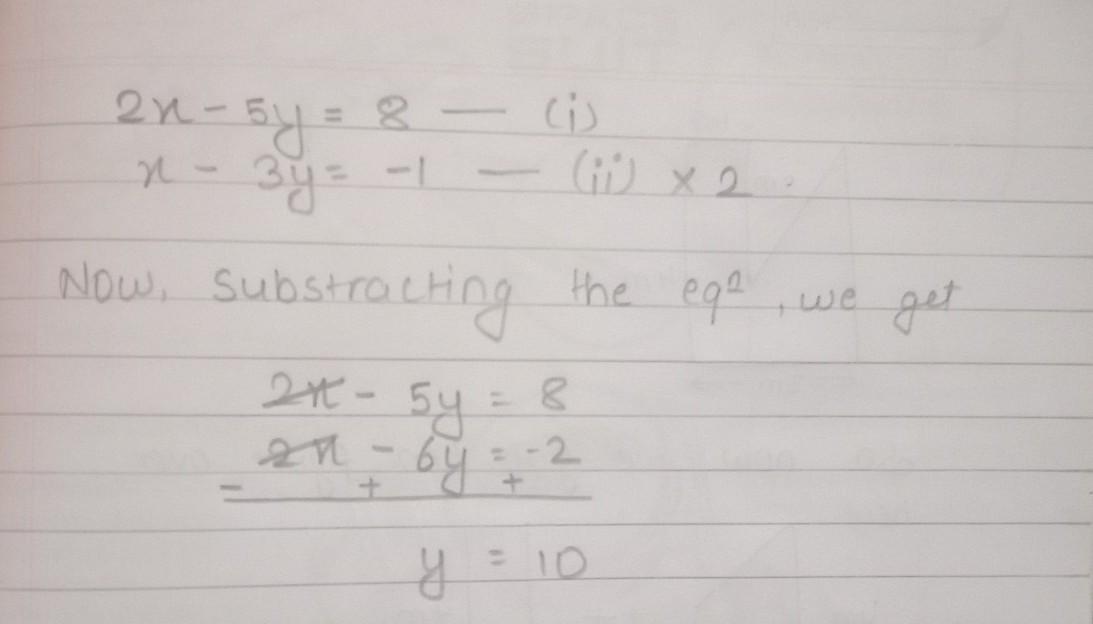 2x - 5y = 8 — (i)
x - 3y = -1 — (ii) × 2
Now, substracting the eqⁿ, we get
2x - 5y = 8
2x - 6y = -2
- + +
y = 10